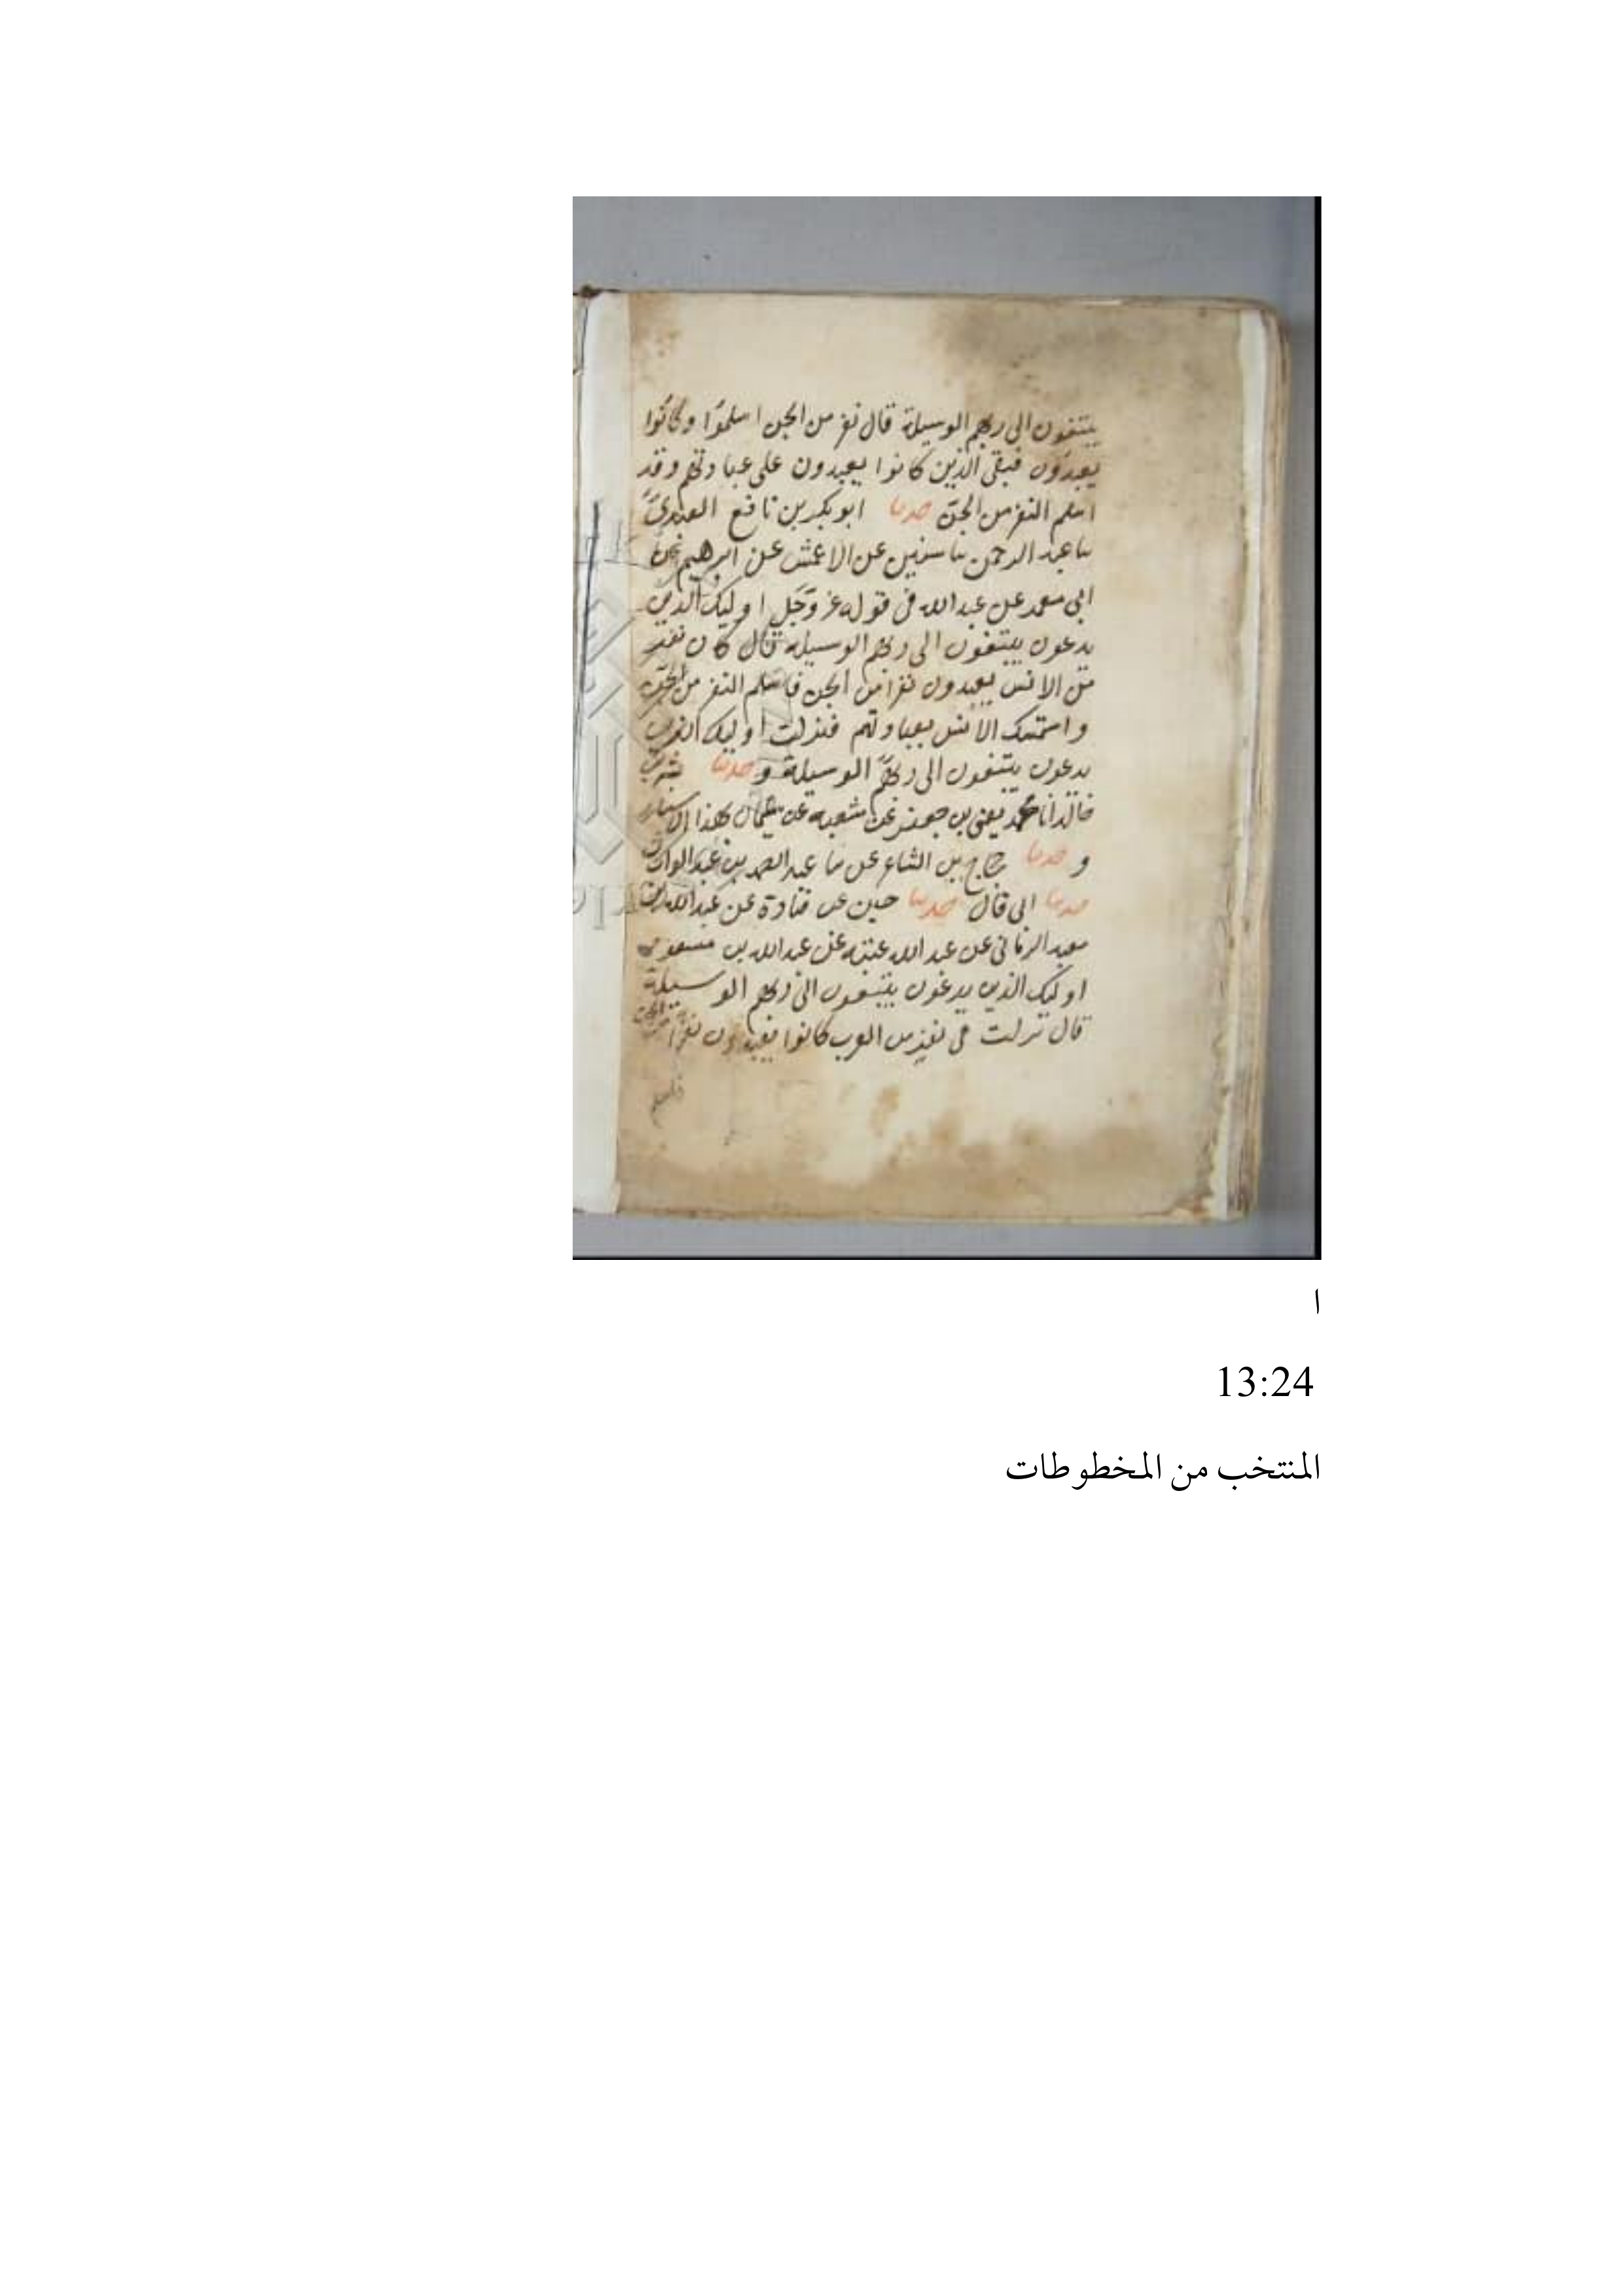 يبتغون الى ربهم الوسيلة قال نفر من الجن اسلموا وكانوا
يعبدون فبقى الذين كانوا يعبدون على عبادتهم وقد
اسلم النفر من الجن حدثنا ابو بكر بن نافع العبدى
نا عبد الرحمن نا سفين عن الاعمش عن ابرهيم عن
ابى معمر عن عبد الله فى قوله عز وجل اوليك الذين
يدعون يبتغون الى ربهم الوسيله قال كان نفر
من الانس يعبدون نفرا من الجن فاسلم النفر من الجن
واستمسك الانس بعبادتهم فنزلت اوليك الذين
يدعون يبتغون الى ربهم الوسيلة وحدثنا بشر بن
خالد انا محمد يعنى بن جعفر عن شعبه عن سليمان بهذا الاسناد
وحدثنا حجاج بن الشاعر نا عبد الصمد بن عبد الوارث
حدثنا ابى قال حدثنا حسين عن قتادة عن عبد الله بن
معبد الزمانى عن عبد الله عتبه عن عبد الله بن مسعود
اوليك الذين يدعون يبتغون الى ربهم الوسيلة
قال نزلت فى نفر من العرب كانوا يعبدون نفرا من الجن
فاسلم
ا
13:24
المنتخب من المخطوطات